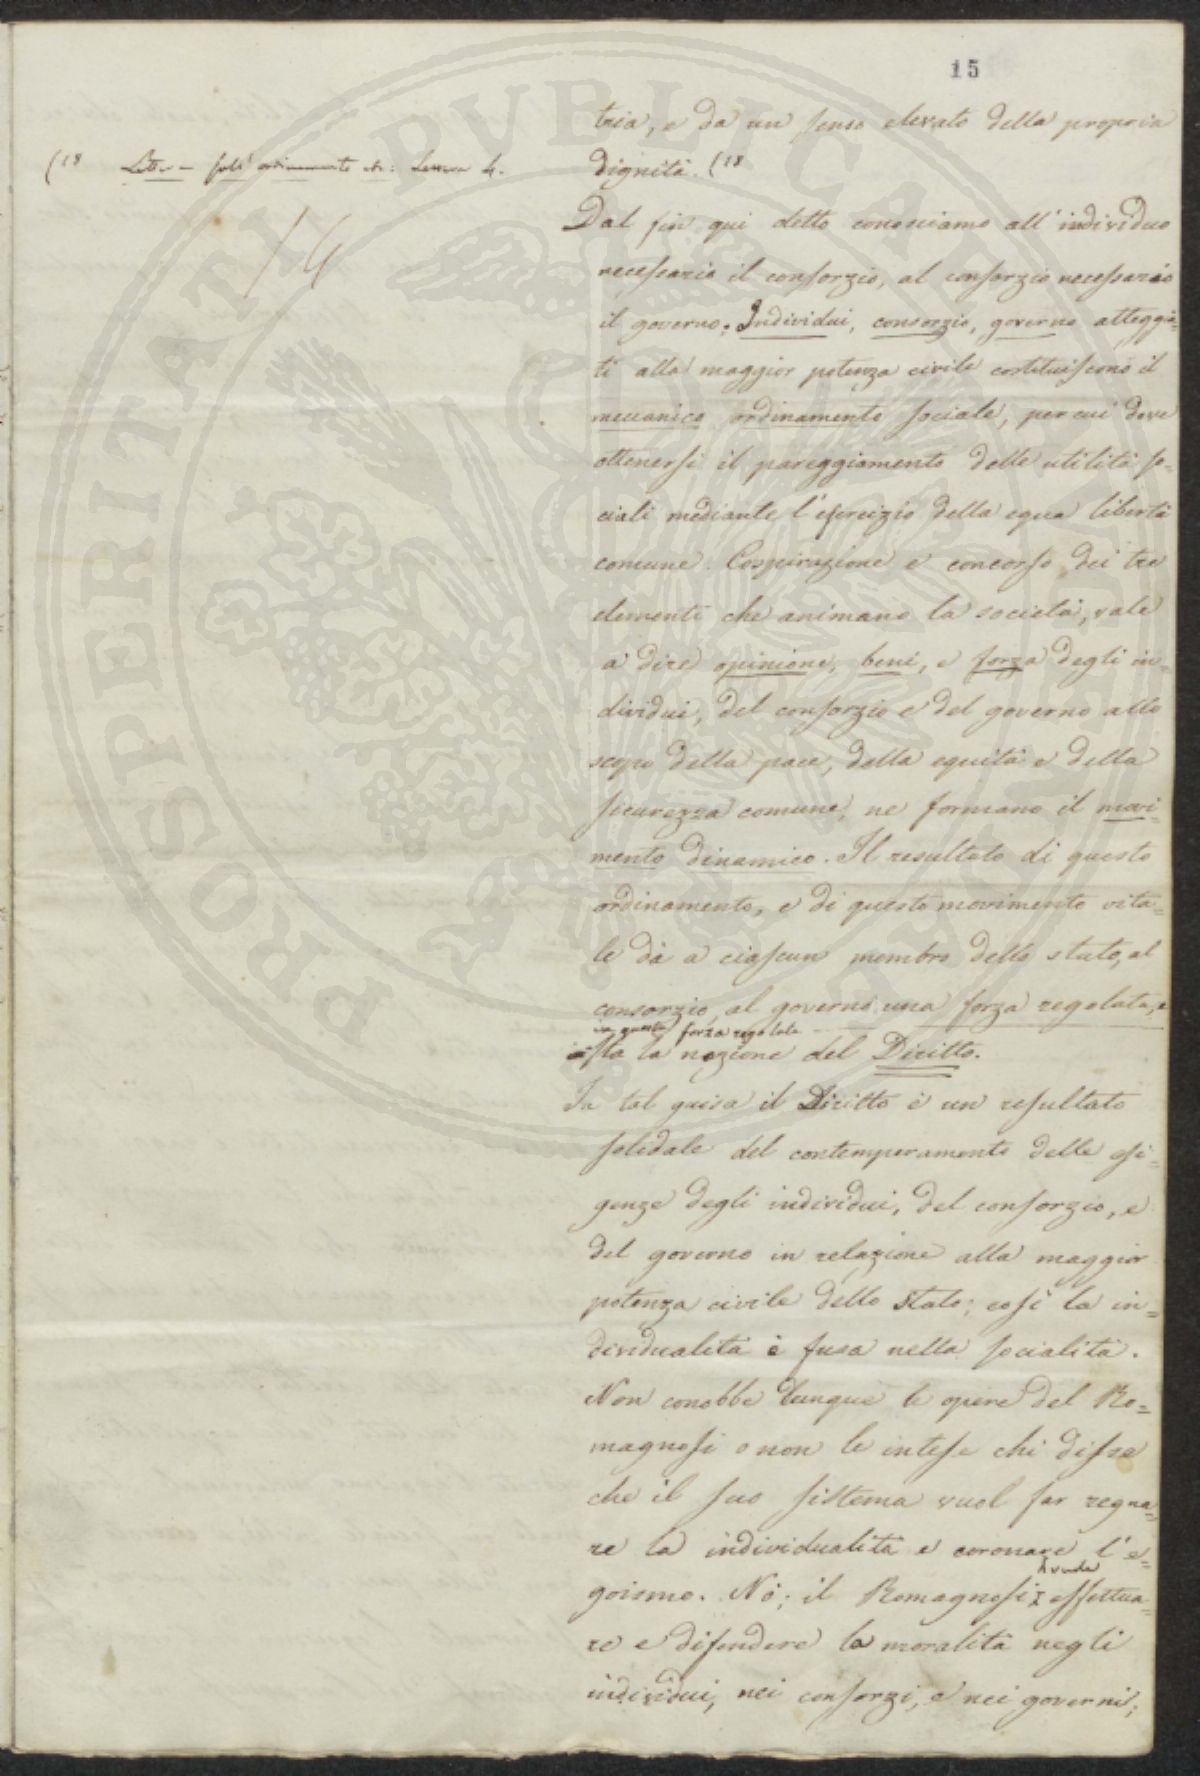 15
tria, e da un senso elevato della propria
(18 Lette – sull' ordinamento etc: Lettera 4.
dignità. (18
14
Dal fin qui detto conosciamo all' individuo
necessario il consorzio, al consorzio necessario
il governo. Individui, consorzio, governo atteggia=
ti alla maggior potenza civile costituiscono il
meccanico ordinamento sociale, per cui deve
ottenersi il pareggiamento delle utilità so=
ciali mediante l'esercizio della equa libertà
comune. Cospirazione e concorso dei tre
elementi che animano la società, vale
a dire opinione, beni, e forza degli in=
dividui, del consorzio e del governo allo
scopo della pace, della equità e della
sicurezza comune, ne formano il movi=
mento dinamico. Il resultato di questo
ordinamento, e di questo movimento vita=
le dà a ciascun membro dello stato, al
consorzio, al governo una forza regolata, e
in questa forza regolata
sta la nozione del Diritto.
In tal guisa il Diritto è un resultato
solidale del contemperamento delle esi=
genze degli individui, del consorzio, e
del governo in relazione alla maggior
potenza civile dello Stato; così la in=
dividualità è fusa nella socialità.
Non conobbe dunque le opere del Ro=
magnosi o non le intese chi disse
che il suo sistema vuol far regna=
re la individualità e coronare l'e=
goismo. Nò; il Romagnosi effettua=
re e difendere la moralità negli
individui, nei consorzi, e nei governi;
PROSPERITATI PUBLICAE